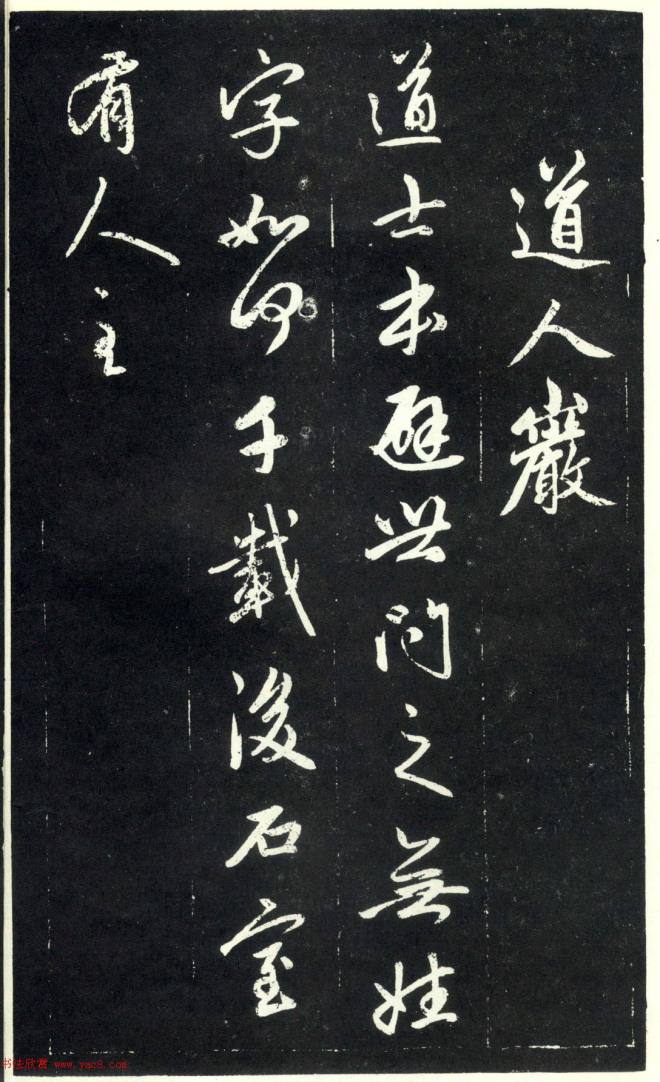 道人巖
道士本避世問之無姓
字如何千載後石室
有人至
书法欣赏 www.yac8.com